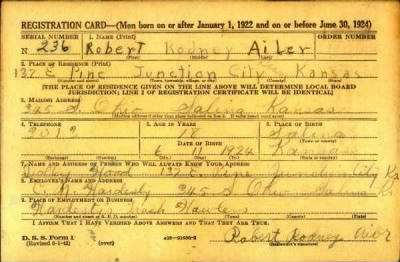 REGISTRATION CARD—(Men born on or after January 1, 1922 and on or before June 30, 1924)
SERIAL NUMBER 1. NAME (Print) ORDER NUMBER
N 236 Robert Rodney Ailer
(First) (Middle) (Last)
2. PLACE OF RESIDENCE (Print)
137 E Pine Junction City Kansas
(Number and street) (Town, township, village, or city) (County) (State)
[THE PLACE OF RESIDENCE GIVEN ON THE LINE ABOVE WILL DETERMINE LOCAL BOARD
JURISDICTION; LINE 2 OF REGISTRATION CERTIFICATE WILL BE IDENTICAL]
3. MAILING ADDRESS
345 S. Ohio Salina Kansas
(Mailing address if other than place indicated on line 2. If same insert word same)
4. TELEPHONE 5. AGE IN YEARS 6. PLACE OF BIRTH
18 Salina
DATE OF BIRTH
6 1924 Kansas
(Exchange) (Number) (Mo.) (Day) (Yr.) (State or country)
7. NAME AND ADDRESS OF PERSON WHO WILL ALWAYS KNOW YOUR ADDRESS
Wood 137 E Pine Junction City Ka
8. EMPLOYER'S NAME AND ADDRESS
Hardesty 345 S Ohio Salina
9. PLACE OF EMPLOYMENT OR BUSINESS
Hardesty Trash Hawlers
(Number and street or R. F. D. number) (Town) (County) (State)
I AFFIRM THAT I HAVE VERIFIED ABOVE ANSWERS AND THAT THEY ARE TRUE.
D. S. S. Form 1
(Revised 6-1-42) (over) Robert Rodney Ailer
(Registrant's signature)